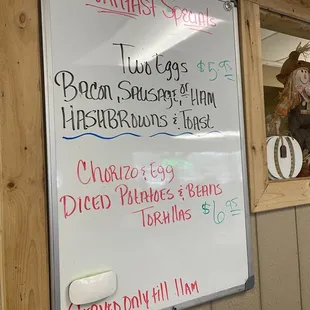 Breakfast Specials
Two Eggs $5.95
Bacon, Sausage, or Ham
Hashbrowns & Toast
Chorizo & Egg
Diced Potatoes & Beans
Tortillas $6.95
Served Only till 11am